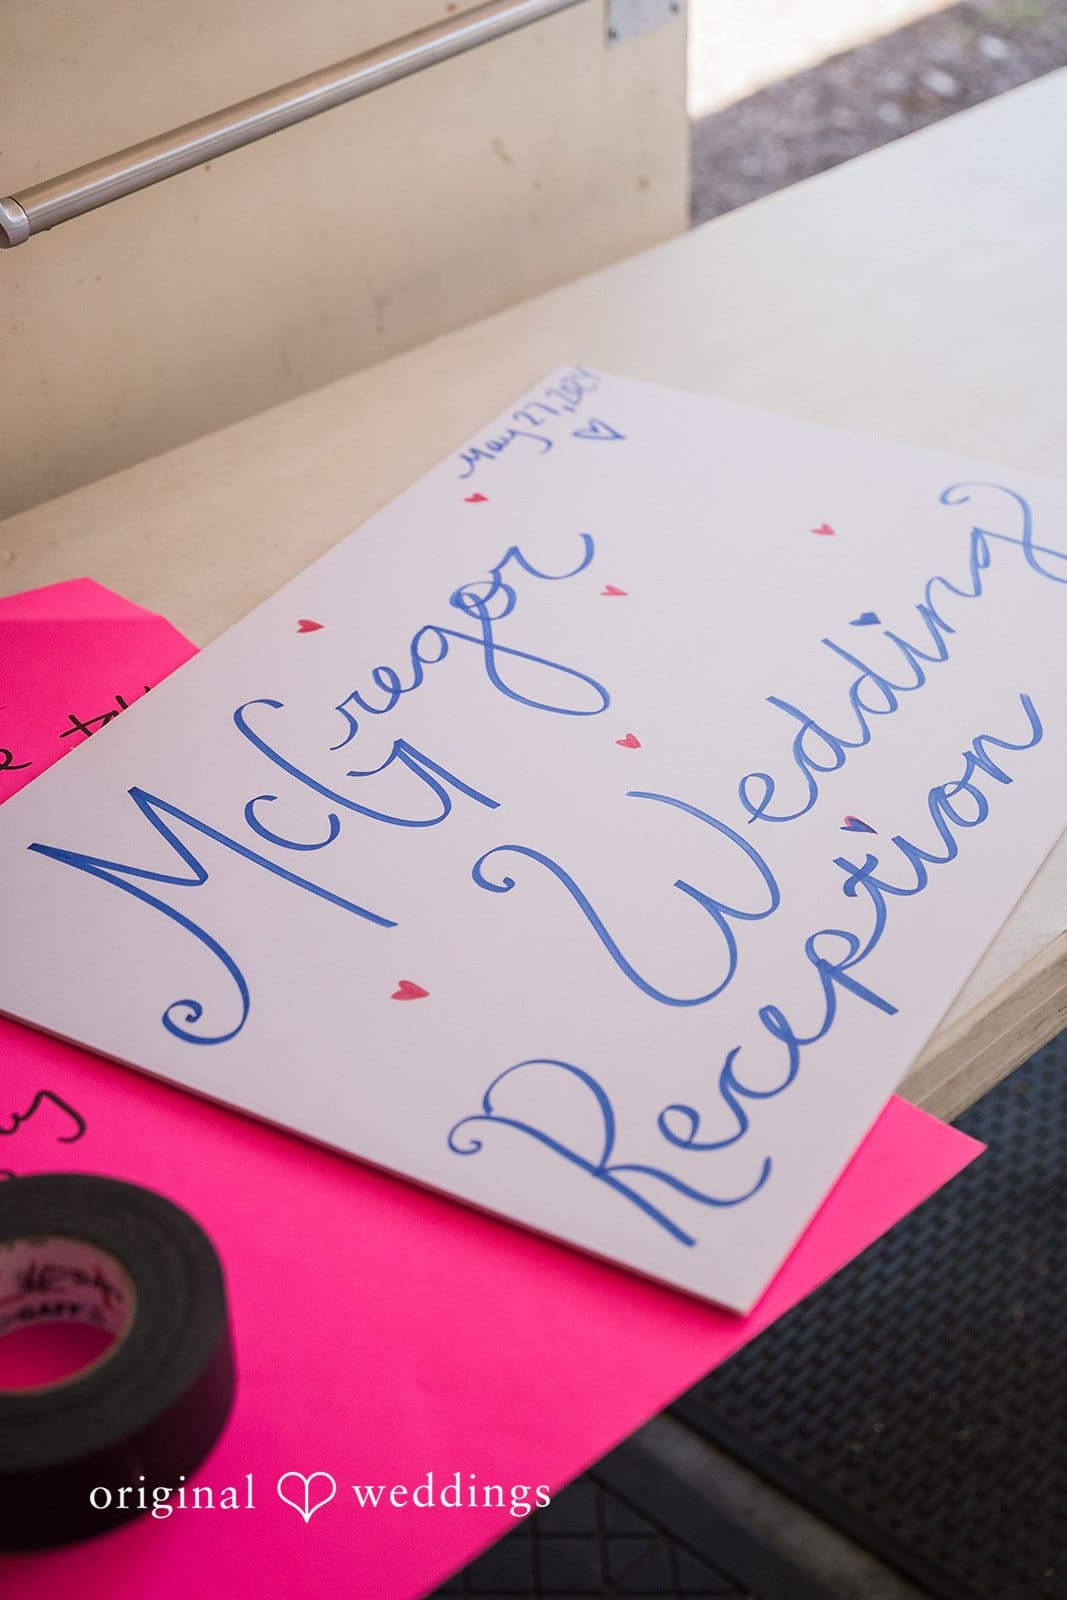 May 27, 2024
McGregor
Wedding
Reception
GAFF
original weddings